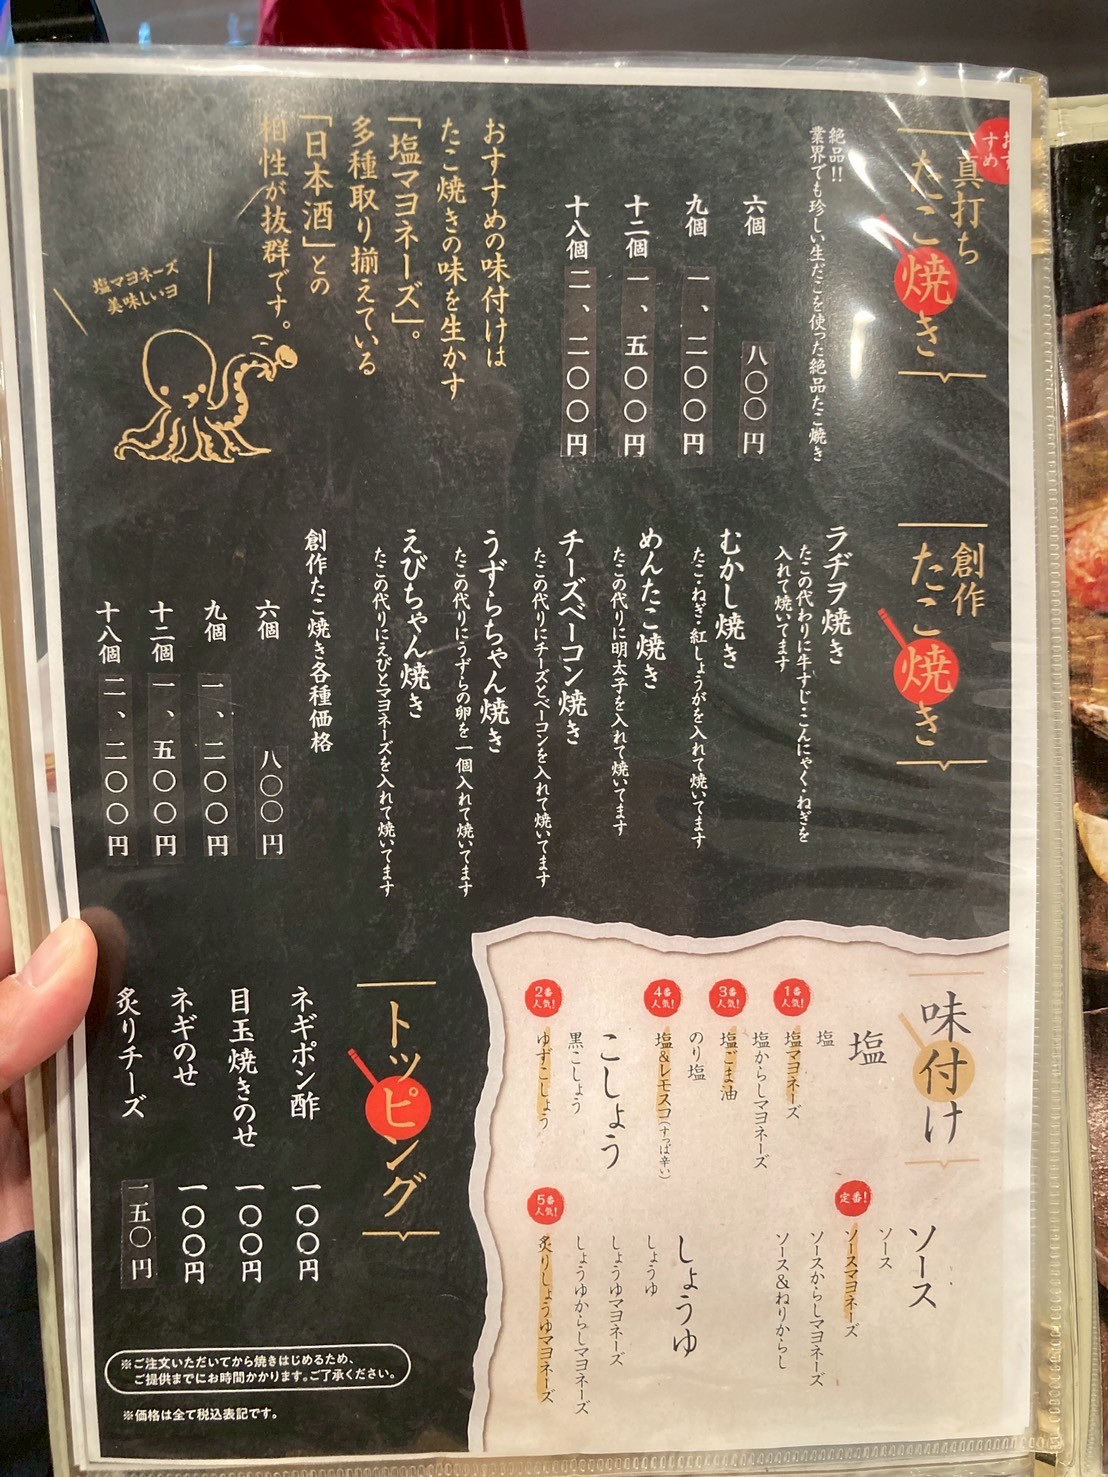 おすすめ
真打ち
たこ焼き
絶品!!
業界でも珍しい生だこを使った絶品たこ焼き
六個 八〇〇円
九個 一、二〇〇円
十二個 一、五〇〇円
十八個 二、二〇〇円
おすすめの味付けは
たこ焼きの味を生かす
「塩マヨネーズ」。
多種取り揃えている
「日本酒」との
相性が抜群です。
塩マヨネーズ
美味しいヨ
創作
たこ焼き
ラヂヲ焼き
たこの代わりに牛すじ・こんにゃく・ねぎを
入れて焼いてます
むかし焼き
たこ・ねぎ・紅しょうがを入れて焼いてます
めんたこ焼き
たこの代りに明太子を入れて焼いてます
チーズベーコン焼き
たこの代りにチーズとベーコンを入れて焼いてます
うずらちゃん焼き
たこの代りにうずらの卵を一個入れて焼いてます
えびちゃん焼き
たこの代りにえびとマヨネーズを入れて焼いてます
創作たこ焼き各種価格
六個 八〇〇円
九個 一、二〇〇円
十二個 一、五〇〇円
十八個 二、二〇〇円
味付け
塩
塩
1番人気!
塩マヨネーズ
塩からしマヨネーズ
3番人気!
塩ごま油
のり塩
4番人気!
塩&レモスコ(すっぱ辛い)
こしょう
黒こしょう
2番人気!
ゆずこしょう
ソース
ソース
定番!
ソースマヨネーズ
ソースからしマヨネーズ
ソース&ねりからし
しょうゆ
しょうゆ
しょうゆマヨネーズ
しょうゆからしマヨネーズ
5番人気!
炙りしょうゆマヨネーズ
トッピング
ネギポン酢 一〇〇円
目玉焼きのせ 一〇〇円
ネギのせ 一〇〇円
炙りチーズ 一五〇円
※ご注文いただいてから焼きはじめるため、
ご提供までにお時間かかります。ご了承ください。
※価格は全て税込表記です。